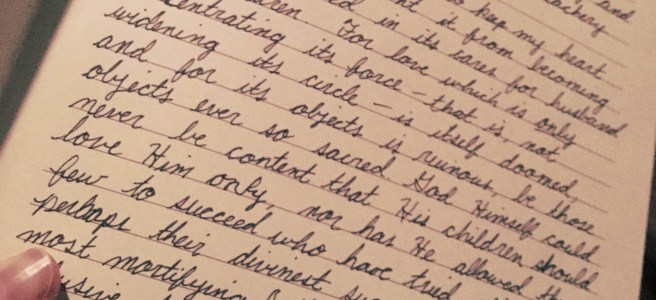 and
to keep my heart
it from becoming
in its cares for husband
For love which is only
centrating its force — that is, not
widening its circle — is itself doomed,
and for its objects is ruinous, be those
objects ever so sacred. God Himself could
never be content that His children should
love Him only, nor has He allowed the
few to succeed who have tried
perhaps their divinest
most mortifying